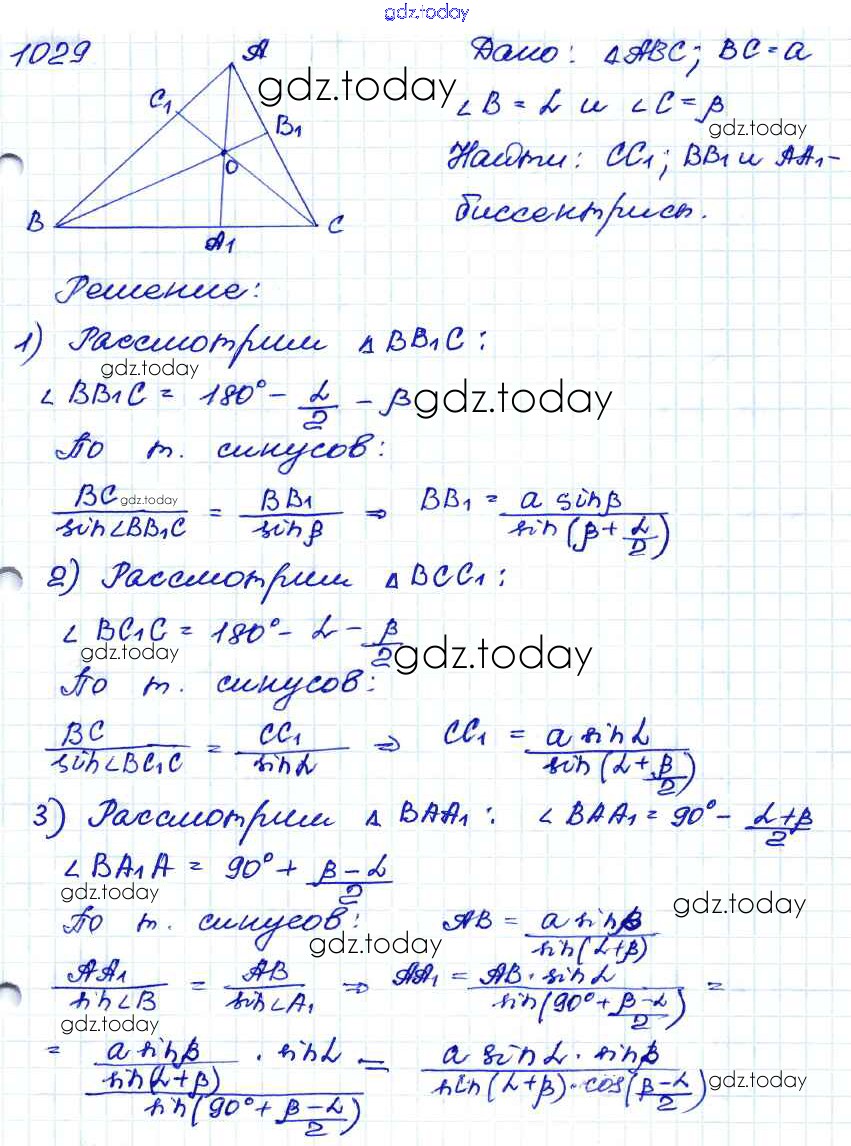 gdz.today
1029
A
C₁
B₁
O
B
A₁
C
Дано: ΔABC; BC = a
gdz.today
∠B = α и ∠C = β
gdz.today
Найти: CC₁; BB₁ и AA₁ -
биссектрисы.
Решение:
1) Рассмотрим Δ BB₁C:
gdz.today
∠ BB₁C = 180° - α/2 - β
gdz.today
По т. синусов:
BC/sin∠BB₁C = BB₁/sinβ ⇒ BB₁ = a sinβ/sin(β + α/2)
gdz.today
2) Рассмотрим Δ BCC₁:
∠ BC₁C = 180° - α - β/2
gdz.today
gdz.today
По т. синусов:
BC/sin∠BC₁C = CC₁/sinα ⇒ CC₁ = a sinα/sin(α + β/2)
3) Рассмотрим Δ BAA₁: ∠BAA₁ = 90° - (α+β)/2
∠BA₁A = 90° + (β-α)/2
gdz.today
gdz.today
По т. синусов: AB = a sinβ/sin(α+β)
gdz.today
AA₁/sin∠B = AB/sin∠A₁ ⇒ AA₁ = AB · sinα/sin(90° + (β-α)/2) =
gdz.today
= (a sinβ/sin(α+β) · sinα)/sin(90° + (β-α)/2) = a sinα · sinβ/(sin(α+β) · cos((β-α)/2))
gdz.today